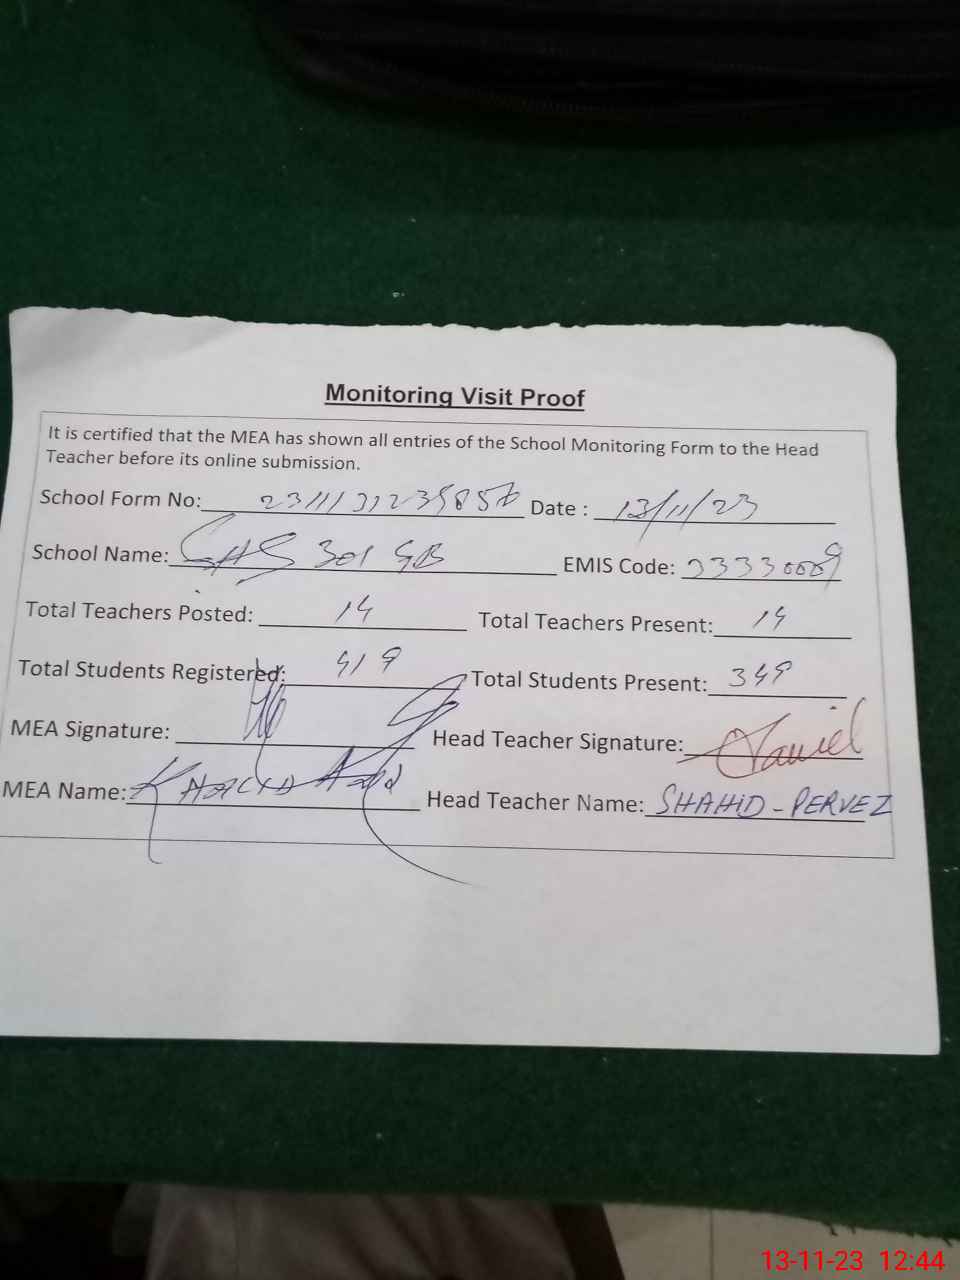 Monitoring Visit Proof
It is certified that the MEA has shown all entries of the School Monitoring Form to the Head
Teacher before its online submission.
School Form No: Date : 13/11/23
School Name: GHS 301 GB EMIS Code:
Total Teachers Posted: 14 Total Teachers Present: 14
Total Students Registered: 419 Total Students Present: 349
MEA Signature: Head Teacher Signature:
MEA Name: Head Teacher Name: SHAHID - PERVEZ
13-11-23 12:44